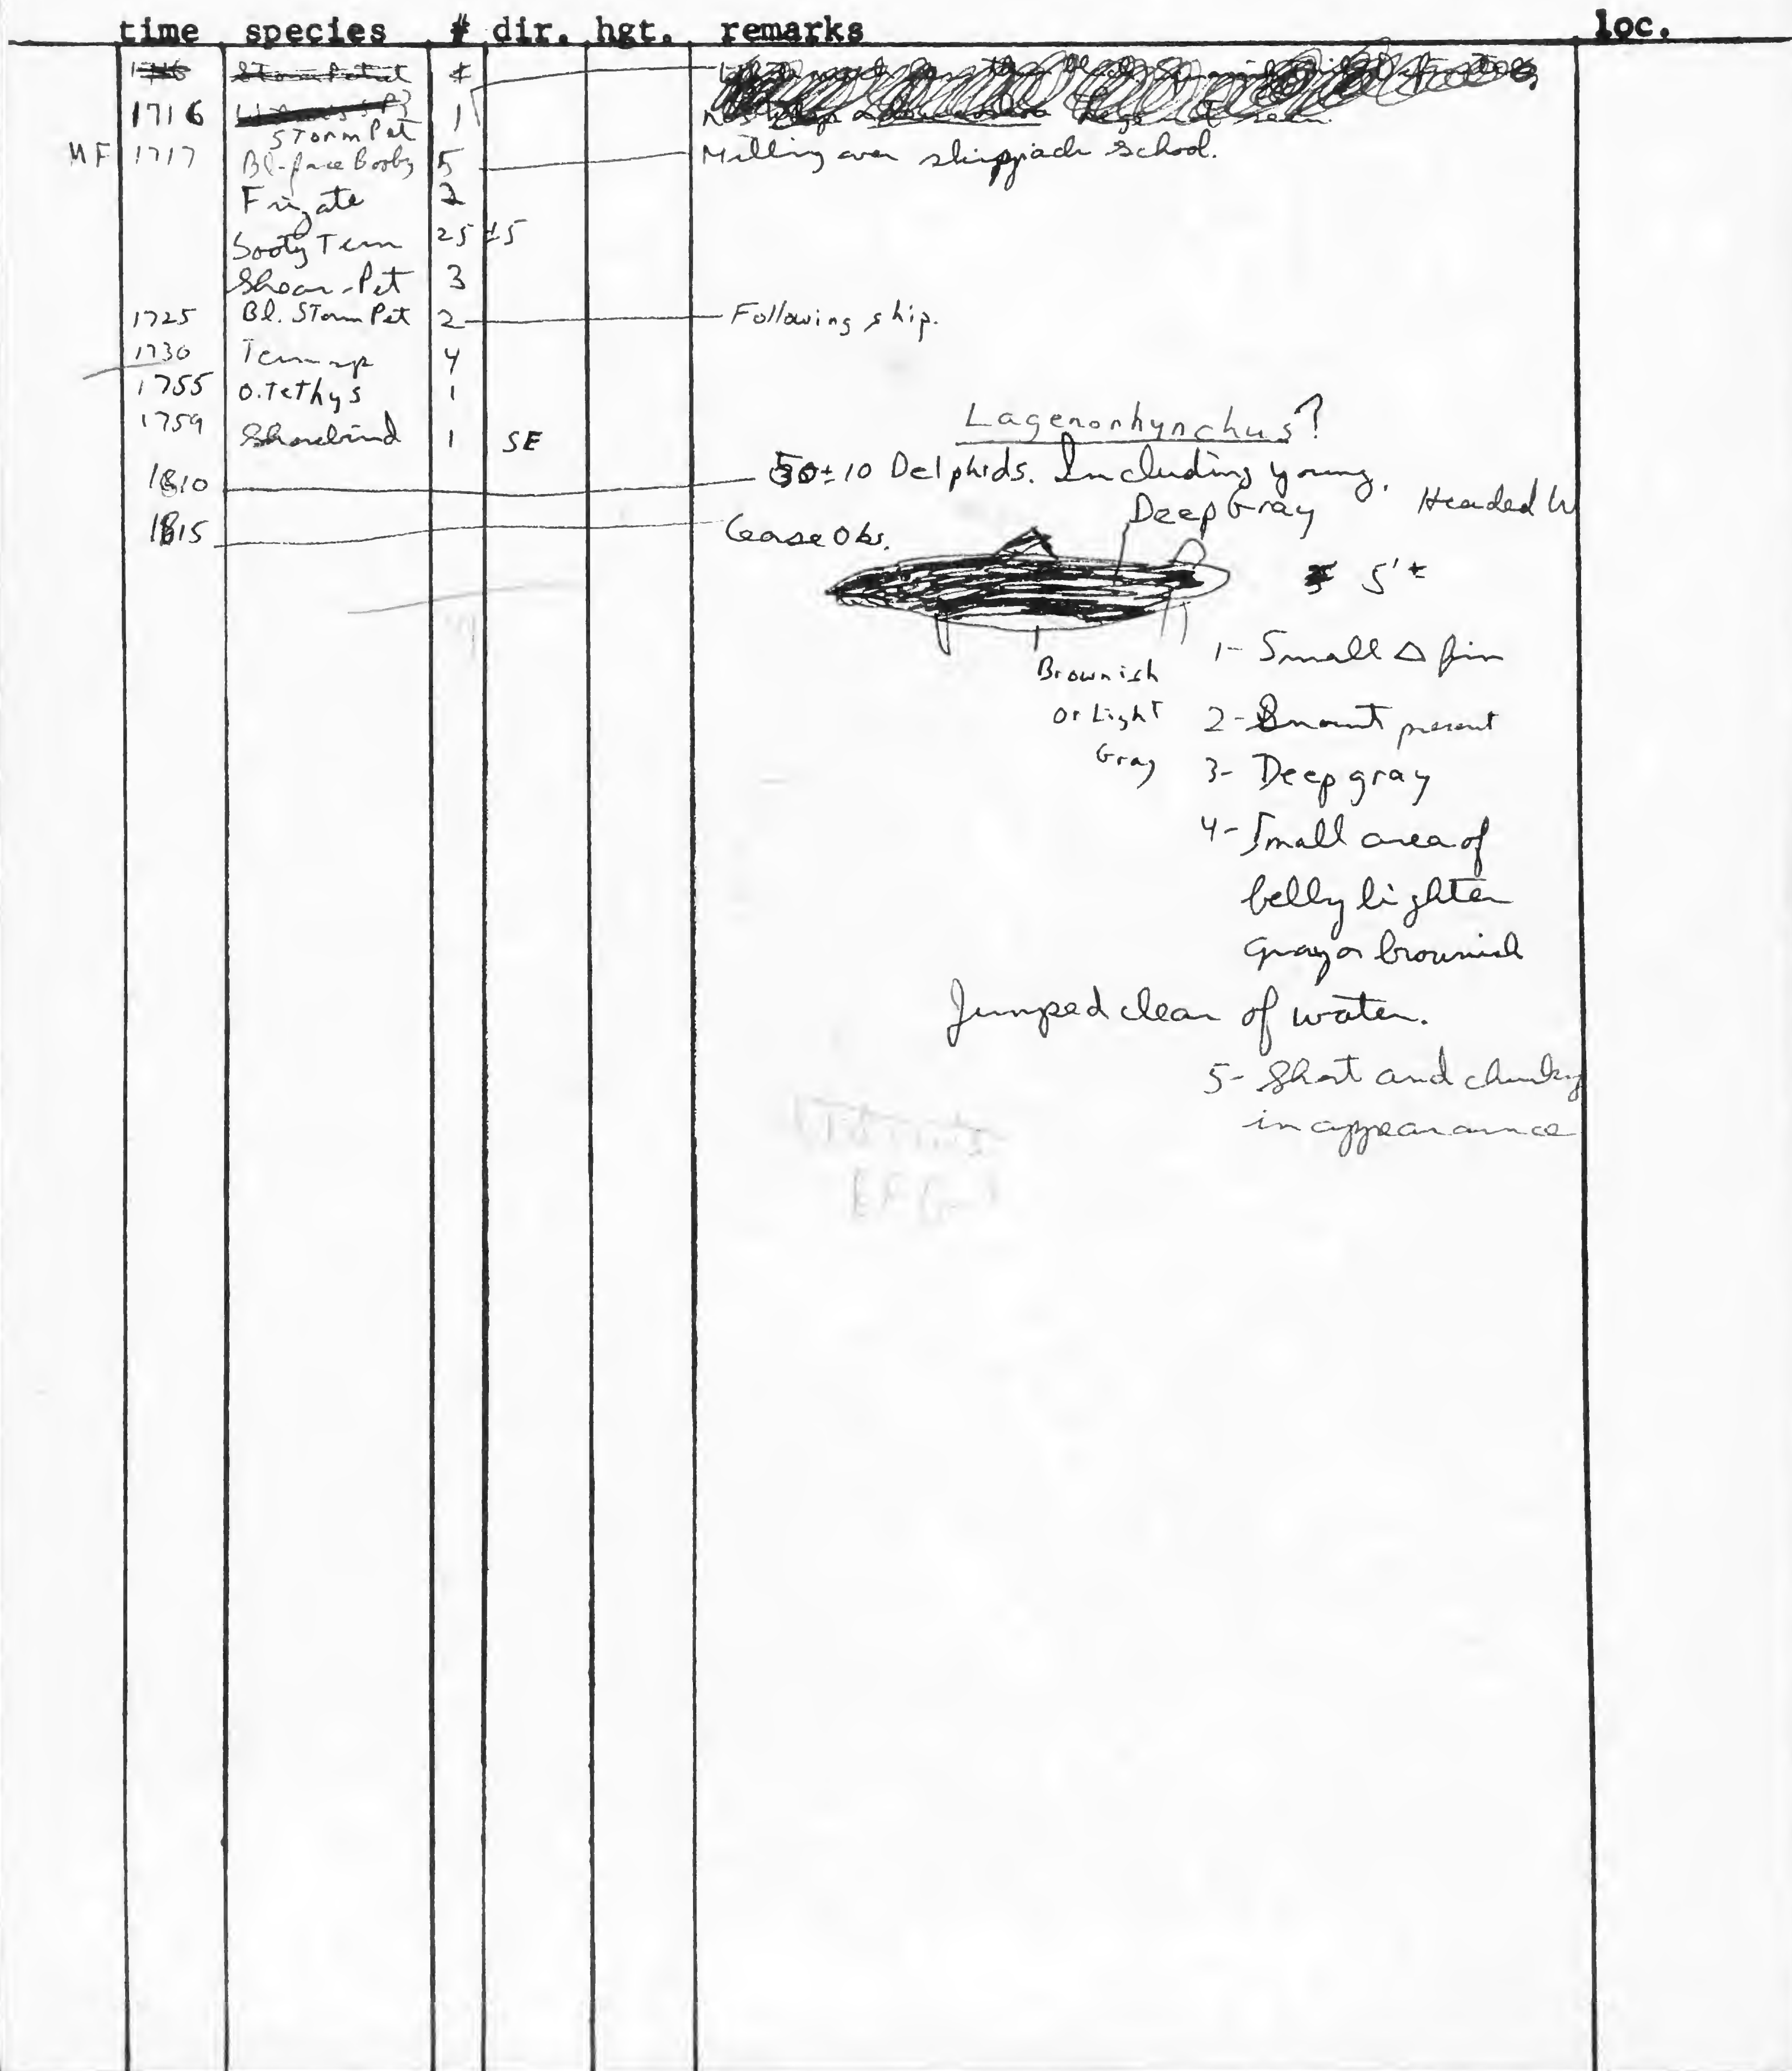 time species # dir. hgt. remarks loc.
Storm Petrel
1716 1
Storm Pet seen.
MF 1717 Bl-face Booby 5 Milling over skipjack School.
Frigate 2
Sooty Tern 25 ±5
Shear-Pet 3
1725 Bl. Storm Pet 2 Following ship.
1730 Tern sp 4
1755 O. Tethys 1
1759 Shorebird 1 SE
Lagenorhynchus?
1810 50±10 Delphids. Including young. Headed W
Deep Gray
1815 Cease Obs.
5'±
1- Small Δ fin
Brownish
Or Light 2- Snout present
Gray 3- Deep gray
4- Small area of
belly lighter
gray or brownish
Jumped clear of water.
5- Short and chunky
in appearannce